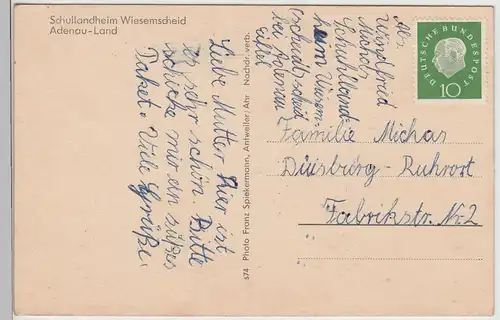 Schullandheim Wiesemscheid
Adenau-Land
Liebe Mutter Hier ist
es sehr schön. Bitte
schicke mir ein süßes
Paket. Viele Grüße.
Abs.
Winfried
Michas
Schulland-
heim Wiesem-
scheid
bei Adenau
Eifel
574 Photo Franz Spiekermann, Antweiler/Ahr Nachdr. verb.
DEUTSCHE BUNDESPOST
10
Familie Michas
Duisburg - Ruhrort
Fabrikstr. Nr 2